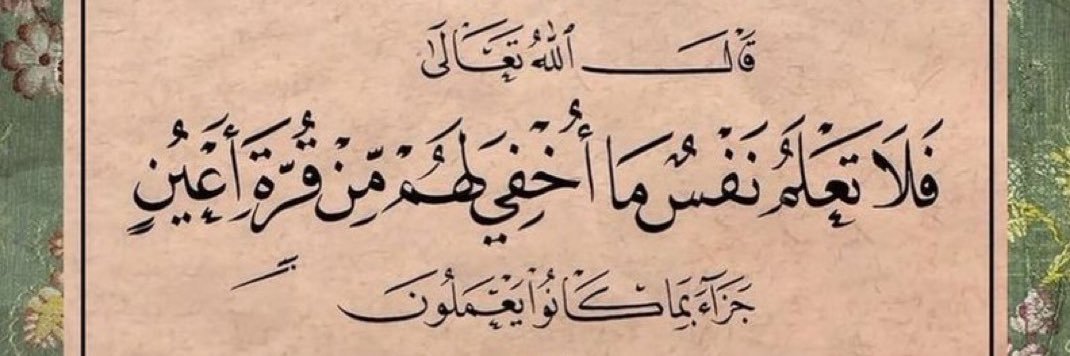 قَالَ اللهُ تَعَالَىٰ
فَلَا تَعْلَمُ نَفْسٌ مَا أُخْفِيَ لَهُمْ مِّنْ قُرَّةِ أَعْيُنٍ
جَزَآءً بِمَا كَانُوا يَعْمَلُونَ